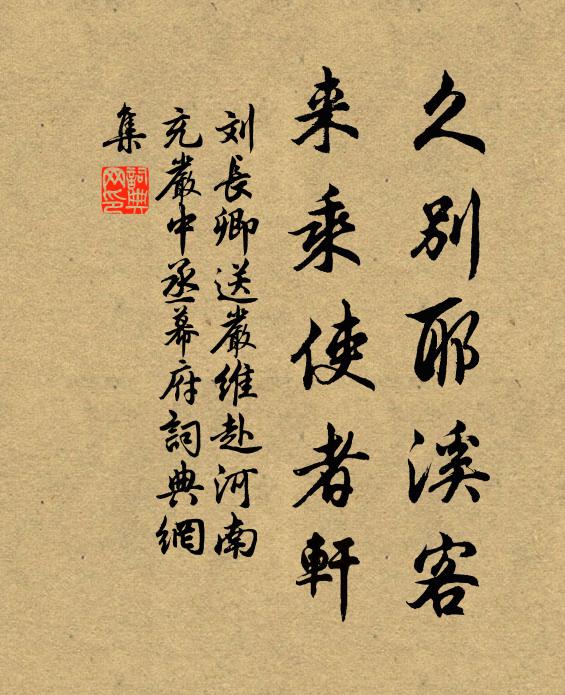 久别耶溪客
来乘使者軒
刘長卿送嚴維赴河南
充嚴中丞幕府詞典網
集
詞典网印